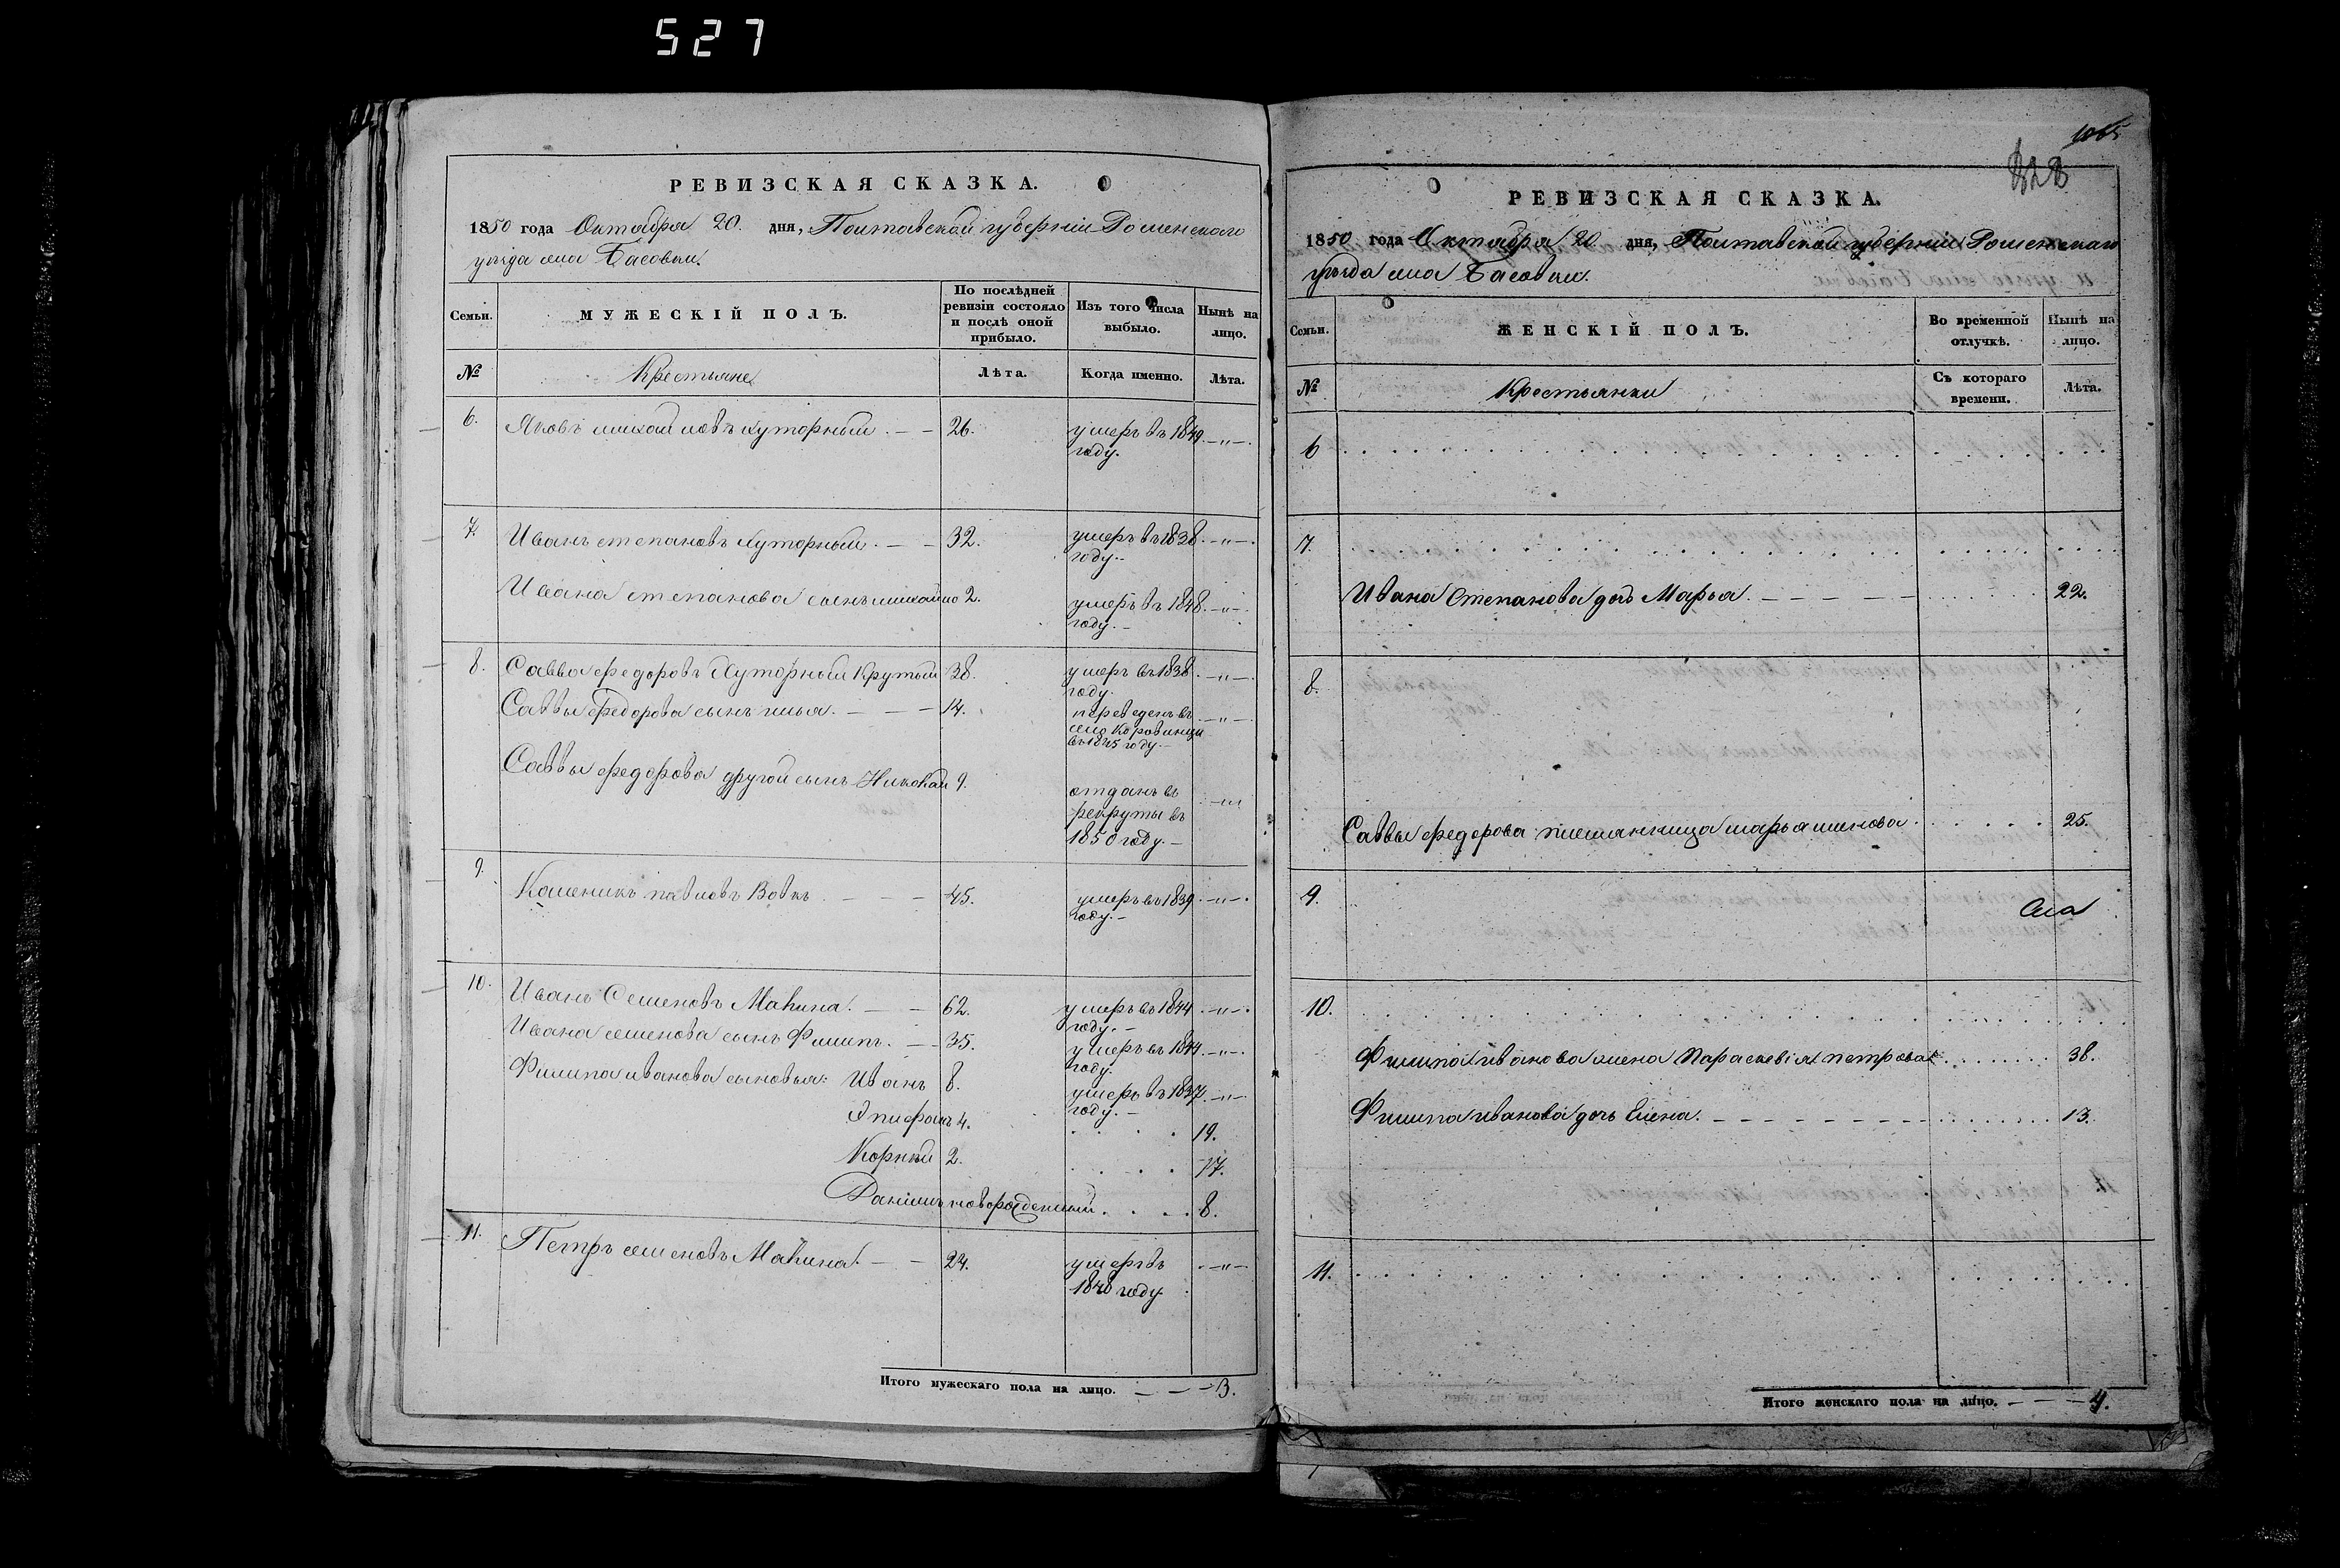 527
РЕВИЗСКАЯ СКАЗКА.
1850 года Октября 20. дня, Полтавской губерніи Роменскаго
уѣзда села Басовки.
Семьи.
МУЖЕСКІЙ ПОЛЪ.
По послѣдней ревизіи состояло и послѣ оной прибыло.
Изъ того числа выбыло.
Нынѣ на лицо.
№
Крестьяне
Лѣта.
Когда именно.
Лѣта.
6. Яковъ михайловъ хуторный. — — 26. умеръ въ 1849 —„—.
году.
7. Иванъ степановъ хуторный. — — 32. умеръ въ 1838. —„—.
году.—
Ивана степанова сынъ михайло 2. умеръ въ 1848. —„—.
году.—
8. Савва федоровъ Хуторный Крутый 38. умеръ въ 1838. —„—.
году.
Саввы Федорова сынъ илья. — — — 14. переведенъ въ —„—.
село Коровинцы
въ 1845 году.—
Саввы федорова другой сынъ Николай 9. отданъ въ —„—
рекруты въ
1850 году.—
9. павловъ Вовкъ. — — — 45. умеръ въ 1839. —„—.
году.—
10. Иванъ Семеновъ Макина. — — 62. умеръ въ 1844. —„—.
году.—
Ивана семенова сынъ Филипъ. — — 35. умеръ въ 1844. —„—.
году.
Филипа иванова сыновья: Иванъ 8. умеръ въ 1837. —„—.
году.—
4. . . . . 19.
Корній 2. . . . . 17.
Даніилъ новорожденный . . . . 8.
11. Петръ семеновъ Макина. — — 24. умеръ въ . —„—
1840 году.
Итого мужескаго пола на лицо. — — — 3.
1065
РЕВИЗСКАЯ СКАЗКА.
1850 года Октября 20. дня, Полтавской губерніи Роменскаго
уѣзда села Басовки.
Семьи.
ЖЕНСКІЙ ПОЛЪ.
Во временной отлучкѣ.
Нынѣ на лицо.
№
Крестьянки
Съ котораго времени.
Лѣта.
6
7.
Ивана Степанова дочь Марья. — — — — 22.
8.
Саввы федорова племянница марья 25.
9.
10.
Филипа иванова жена Параскевія петрова 38.
Филипа иванова дочь Елена. — — — — 13.
11.
Итого женскаго пола на лицо. — — — 4.